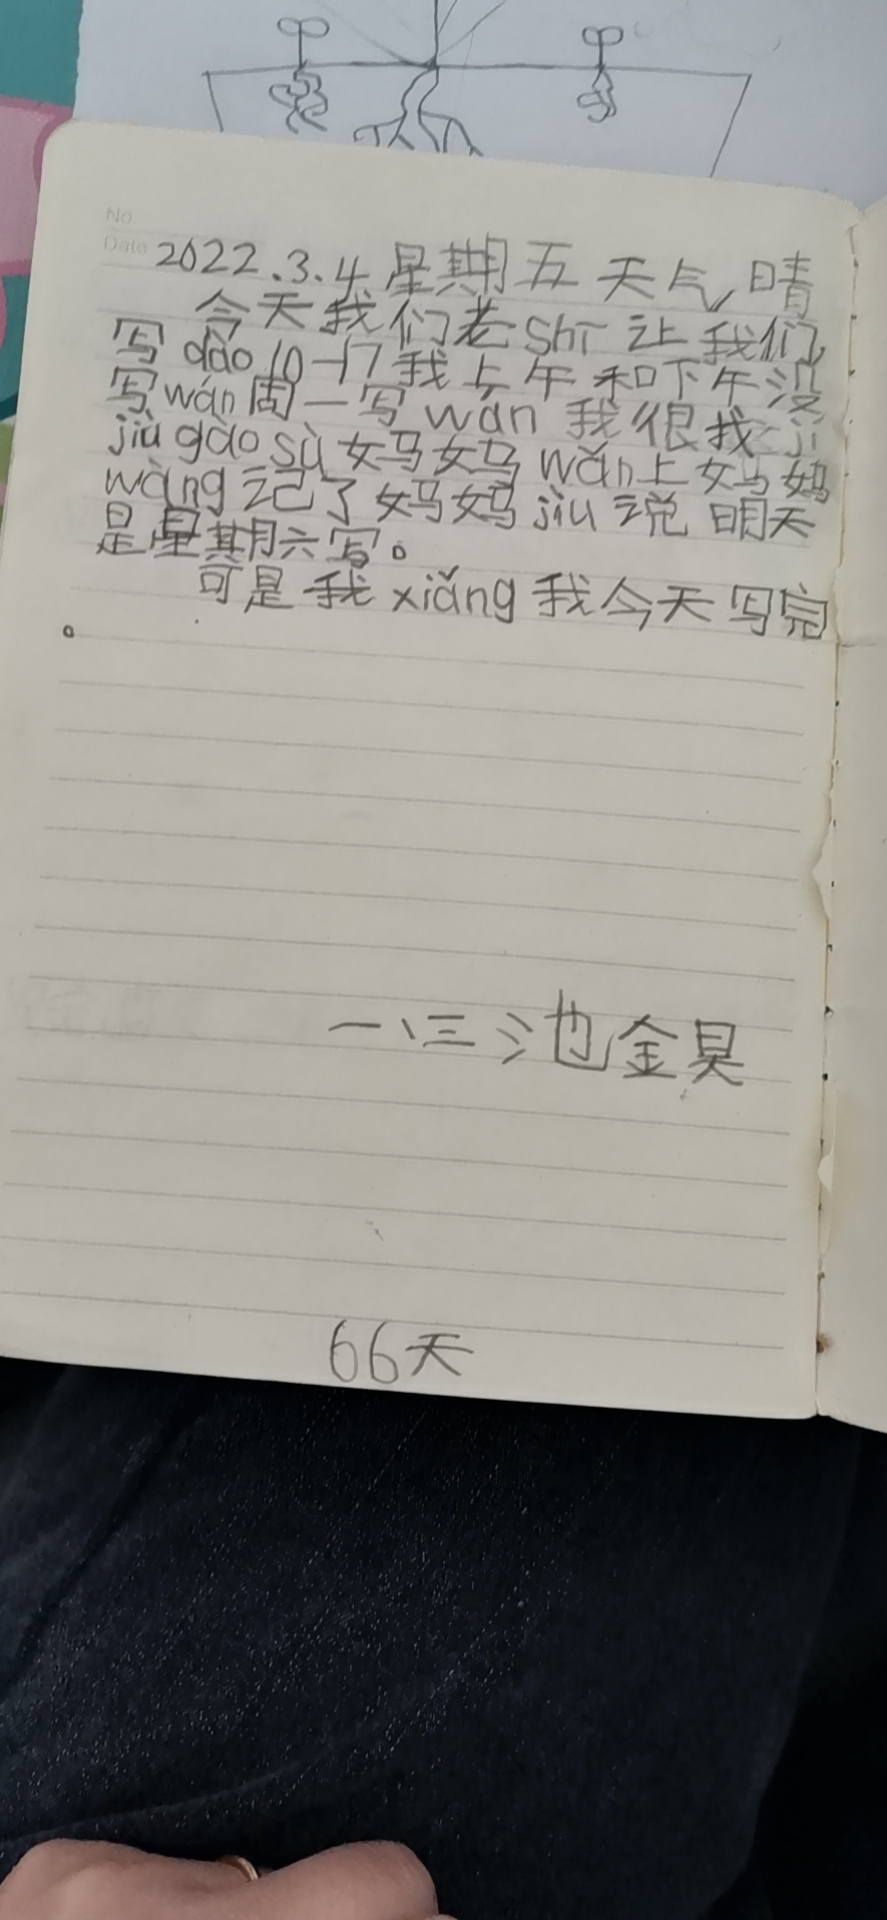 No.
Date 2022.3.4 星期五 天气晴
今天我们老shī让我们
写dào10-17我上午和下午没
写wán周一写wán我很找jí
jiù gào sù妈妈wǎn上妈妈
wàng记了妈妈jiù说明天
是星期六写。
可是我xiǎng我今天写完
。
一、三 池金昊
66天